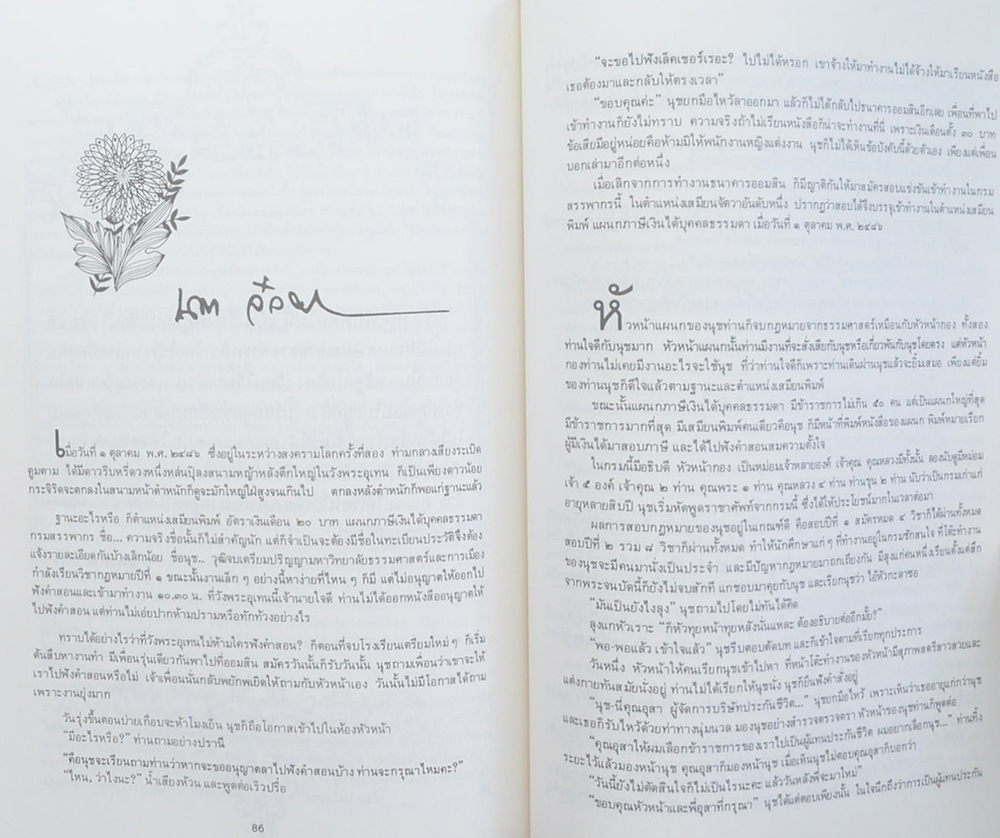 เมื่อวันที่ ๑ ตุลาคม พ.ศ. ๒๔๘๖ ซึ่งอยู่ในระหว่างสงครามโลกครั้งที่สอง ท่ามกลางเสียงระเบิด
ตูมตาม ได้มีดาวริบหรี่ดวงหนึ่งหล่นปุ๊ลงสนามหญ้าหลังตึกใหญ่ในวังพระอุเทน ก็เป็นเพียงดาวน้อย
กระจิริดจะตกลงในสนามหน้าตำหนักก็ดูจะมักใหญ่ใฝ่สูงจนเกินไป ตกลงหลังตำหนักก็พอแก่ฐานะแล้ว
ฐานะอะไรหรือ ก็ตำแหน่งเสมียนพิมพ์ อัตราเงินเดือน ๒๐ บาท แผนกภาษีเงินได้บุคคลธรรมดา
กรมสรรพากร ชื่อ... ความจริงชื่อนั้นก็ไม่สำคัญนัก แต่ก็จำเป็นจะต้องมีชื่อในทะเบียนประวัติจึงต้อง
แจ้งรายละเอียดกันบ้างเล็กน้อย ชื่อนุช.. วุฒิจบเตรียมปริญญามหาวิทยาลัยธรรมศาสตร์และการเมือง
กำลังเรียนวิชากฎหมายปีที่ ๑ ขณะนั้นงานเล็ก ๆ อย่างนี้หาง่ายที่ไหน ๆ ก็มี แต่ไม่อนุญาตให้ออกไป
ฟังคำสอนและเข้ามาทำงาน ๑๐.๓๐ น. ที่วังพระอุเทนนี้เจ้านายใจดี ท่านไม่ได้ออกหนังสืออนุญาตให้
ไปฟังคำสอน แต่ท่านก็ไม่เอ่ยปากห้ามปรามหรือทักท้วงอย่างไร
ทราบได้อย่างไรว่าที่วังพระอุเทนไม่ห้ามใครฟังคำสอน? ก็ตอนที่จบโรงเรียนเตรียมใหม่ ๆ ก็เริ่ม
ดั้นสืบหางานทำ มีเพื่อนรุ่นเดียวกันพาไปที่ออมสิน สมัครวันนั้นก็รับวันนั้น นุชถามเพื่อนว่าเขาจะให้
เราไปฟังคำสอนหรือไม่ เจ้าเพื่อนนั่นกลับพยักพเยิดให้ถามกับหัวหน้าเอง วันนั้นไม่มีโอกาสได้ถาม
เพราะงานยุ่งมาก
วันรุ่งขึ้นตอนบ่ายเกือบจะห้าโมงเย็น นุชก็ถือโอกาสเข้าไปในห้องหัวหน้า
“มีอะไรหรือ?” ท่านถามอย่างปรานี
“คือนุชจะเรียนถามท่านว่าหากจะขออนุญาตลาไปฟังคำสอนบ้าง ท่านจะกรุณาไหมคะ?”
“ไหน, ว่าไงนะ?” น้ำเสียงห้วน และพูดต่อเร็วปรื๋อ
86
“จะขอไปฟังเล็คเชอร์เรอะ? ไปไม่ได้หรอก เขาจ้างให้มาทำงานไม่ได้จ้างให้มาเรียนหนังสือ
เธอต้องมาและกลับให้ตรงเวลา”
“ขอบคุณค่ะ” นุชยกมือไหว้ลาออกมา แล้วก็ไม่ได้กลับไปธนาคารออมสินอีกเลย เพื่อนที่พาไป
เข้าทำงานก็ยังไม่ทราบ ความจริงถ้าไม่เรียนหนังสือก็น่าจะทำงานที่นี่ เพราะเงินเดือนตั้ง ๓๐ บาท
ข้อเสียมีอยู่หน่อยคือห้ามมิให้พนักงานหญิงแต่งงาน นุชก็ไม่ได้เห็นข้อบังคับนี้ด้วยตัวเอง เพียงแต่เพื่อน
บอกเล่ามาอีกต่อหนึ่ง
เมื่อเลิกจากการทำงานธนาคารออมสิน ก็มีญาติกันให้มาสมัครสอบแข่งขันเข้าทำงานในกรม
สรรพากรนี้ ในตำแหน่งเสมียนจัตวาอันดับหนึ่ง ปรากฏว่าสอบได้จึงบรรจุเข้าทำงานในตำแหน่งเสมียน
พิมพ์ แผนกภาษีเงินได้บุคคลธรรมดา เมื่อวันที่ ๑ ตุลาคม พ.ศ. ๒๔๘๖
หัวหน้าแผนกของนุชท่านก็จบกฎหมายจากธรรมศาสตร์เหมือนกับหัวหน้ากอง ทั้งสอง
ท่านใจดีกับนุชมาก หัวหน้าแผนกนั้นท่านมีงานที่จะสั่งเสียกับนุชหรือเกี่ยวพันกับนุชโดยตรง แต่หัวหน้า
กองท่านไม่เคยมีงานอะไรจะใช้นุช ที่ว่าท่านใจดีก็เพราะท่านเดินผ่านนุชแล้วจะยิ้มเสมอ เพียงแต่ยิ้ม
ของท่านนุชก็ดีใจแล้วตามฐานะและตำแหน่งเสมียนพิมพ์
ขณะนั้นแผนกภาษีเงินได้บุคคลธรรมดา มีข้าราชการไม่เกิน ๕๐ คน แต่เป็นแผนกใหญ่ที่สุด
มีข้าราชการมากที่สุด มีเสมียนพิมพ์คนเดียวคือนุช ก็มีหน้าที่พิมพ์หนังสือของแผนก พิมพ์หมายเรียก
ผู้มีเงินได้มาสอบภาษี และได้ไปฟังคำสอนสมความตั้งใจ
ในกรมนี้มีอธิบดี หัวหน้ากอง เป็นหม่อมเจ้าหลายองค์ เจ้าคุณ คุณหลวงมีทั้งนั้น ลองนับดูมีหม่อม
เจ้า ๕ องค์ เจ้าคุณ ๒ ท่าน คุณพระ ๑ ท่าน คุณหลวง ๔ ท่าน ท่านขุน ๒ ท่าน นับว่าเป็นกรมเก่าแก่
อายุหลายสิบปี นุชเริ่มหัดพูดราชาศัพท์จากกรมนี้ ซึ่งได้ให้ประโยชน์มากในเวลาต่อมา
ผลการสอบกฎหมายของนุชอยู่ในเกณฑ์ดี คือสอบปีที่ ๑ สมัครหมด ๔ วิชาก็ได้ผ่านทั้งหมด
สอบปีที่ ๒ รวม ๘ วิชาก็ผ่านทั้งหมด ทำให้นักศึกษาแก่ ๆ ที่ทำงานอยู่ในกรมชักสนใจ ที่โต๊ะทำงาน
ของนุชจะมีคนมานั่งเป็นประจำ และมีปัญหากฎหมายมาถกเถียงกัน มีลุงแก่คนหนึ่งเรียนตั้งแต่สึก
จากพระจนบัดนี้ก็ยังไม่จบสักที แกชอบมาคุยกับนุช และเรียกนุชว่า ไอ้หัวกะลาซอ
“มันเป็นยังไงลุง” นุชถามไปโดยไม่ทันได้คิด
ลุงแกหัวเราะ “ก็หัวทุยหน้าทุยหลังนั่นแหละ ต้องอธิบายต่ออีกมั้ย?”
“พอ-พอแล้ว เข้าใจแล้ว” นุชรีบตอบตัดบท และก็เข้าใจตามที่เรียกทุกประการ
วันหนึ่ง หัวหน้าให้คนเรียกนุชเข้าไปหา ที่หน้าโต๊ะทำงานของหัวหน้ามีสุภาพสตรีสาวสวยและ
แต่งกายทันสมัยนั่งอยู่ ท่านไม่ได้เรียกให้นุชนั่ง นุชก็ยืนฟังคำสั่งอยู่
“นุช-นี่คุณอุสา ผู้จัดการบริษัทประกันชีวิต...” นุชยกมือไหว้ เพราะเห็นว่าเธออายุแก่กว่านุช
และเธอก็รับไหว้ด้วยท่าทางนุ่มนวล มองนุชอย่างสำรวจตรวจตรา หัวหน้าของนุชท่านก็พูดต่อ
“คุณอุสาให้ผมเลือกข้าราชการของเราไปเป็นผู้แทนประกันชีวิต ผมอยากเลือกนุช...” ท่านทิ้ง
ระยะไว้แล้วมองหน้านุช คุณอุสาก็มองหน้านุช เมื่อเห็นนุชไม่ตอบคุณอุสาก็บอกว่า
“วันนี้ยังไม่ตัดสินใจก็ไม่เป็นไรนะคะ แล้ววันหลังพี่จะมาใหม่”
“ขอบคุณหัวหน้าและพี่อุสาที่กรุณา” นุชได้แต่ตอบเพียงนั้น ในใจนึกถึงว่าการเป็นผู้แทนประกัน